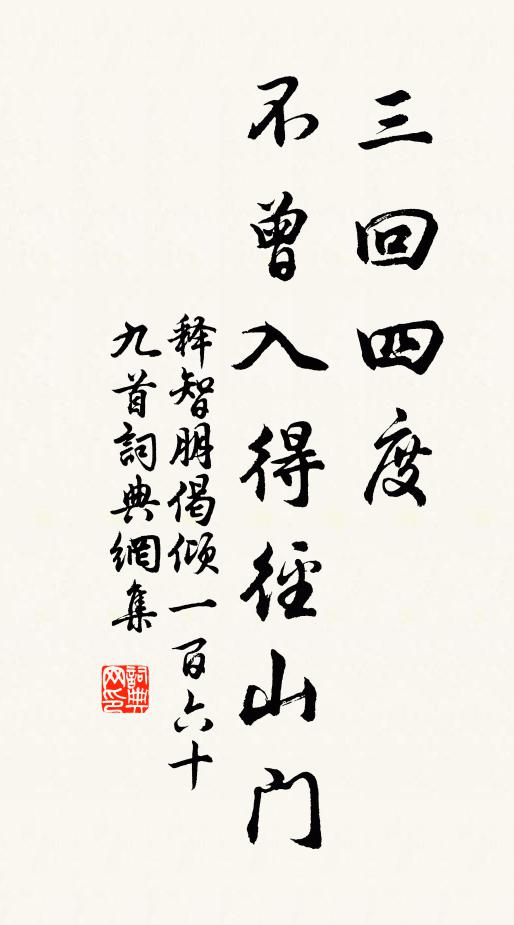 三回四度
不曾入得徑山門
释智朋偈倾一百六十
九首詞典網集
詞典
网印